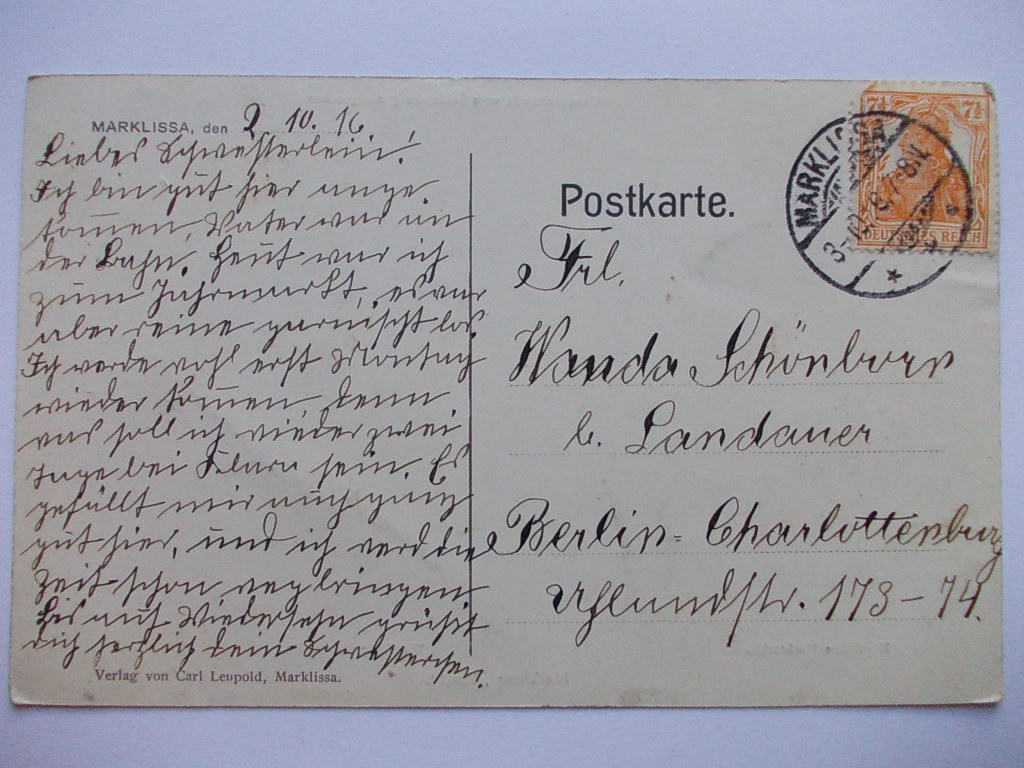 MARKLISSA, den 2.10.16.
Liebes Schwesterlein!
Ich bin gut hier ange-
kommen, Vater war an
der Bahn. Heut war ich
zum Jahrmarkt, es war
aber reine garnischt los.
Ich werde wohl erst Montag
wieder kommen, denn
was soll ich wieder zwei
Tage bei sein. Es
gefällt mir auch ganz
gut hier, und ich werd die
Zeit schon verbringen
Bis auf Wiedersehn grüsst
dich herzlich dein Schwesterchen.
Verlag von Carl Leupold, Marklissa.
Postkarte.
Frl.
Wanda Schönborn
b. Landauer
Berlin-Charlottenburg
Uhlandstr. 173-74.
MARKLISSA
7½ 7½
DEUTSCHES REICH